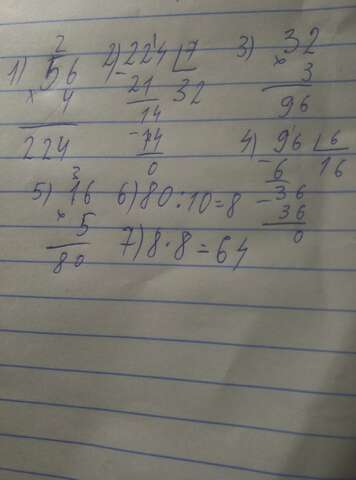 2
1) 56
× 4
224
2) 224 | 7
- 21 32
14
- 14
0
3) 32
× 3
96
4) 96 | 6
- 6 16
- 36
36
0
3
5) 16
× 5
80
6) 80:10=8
7) 8·8=64